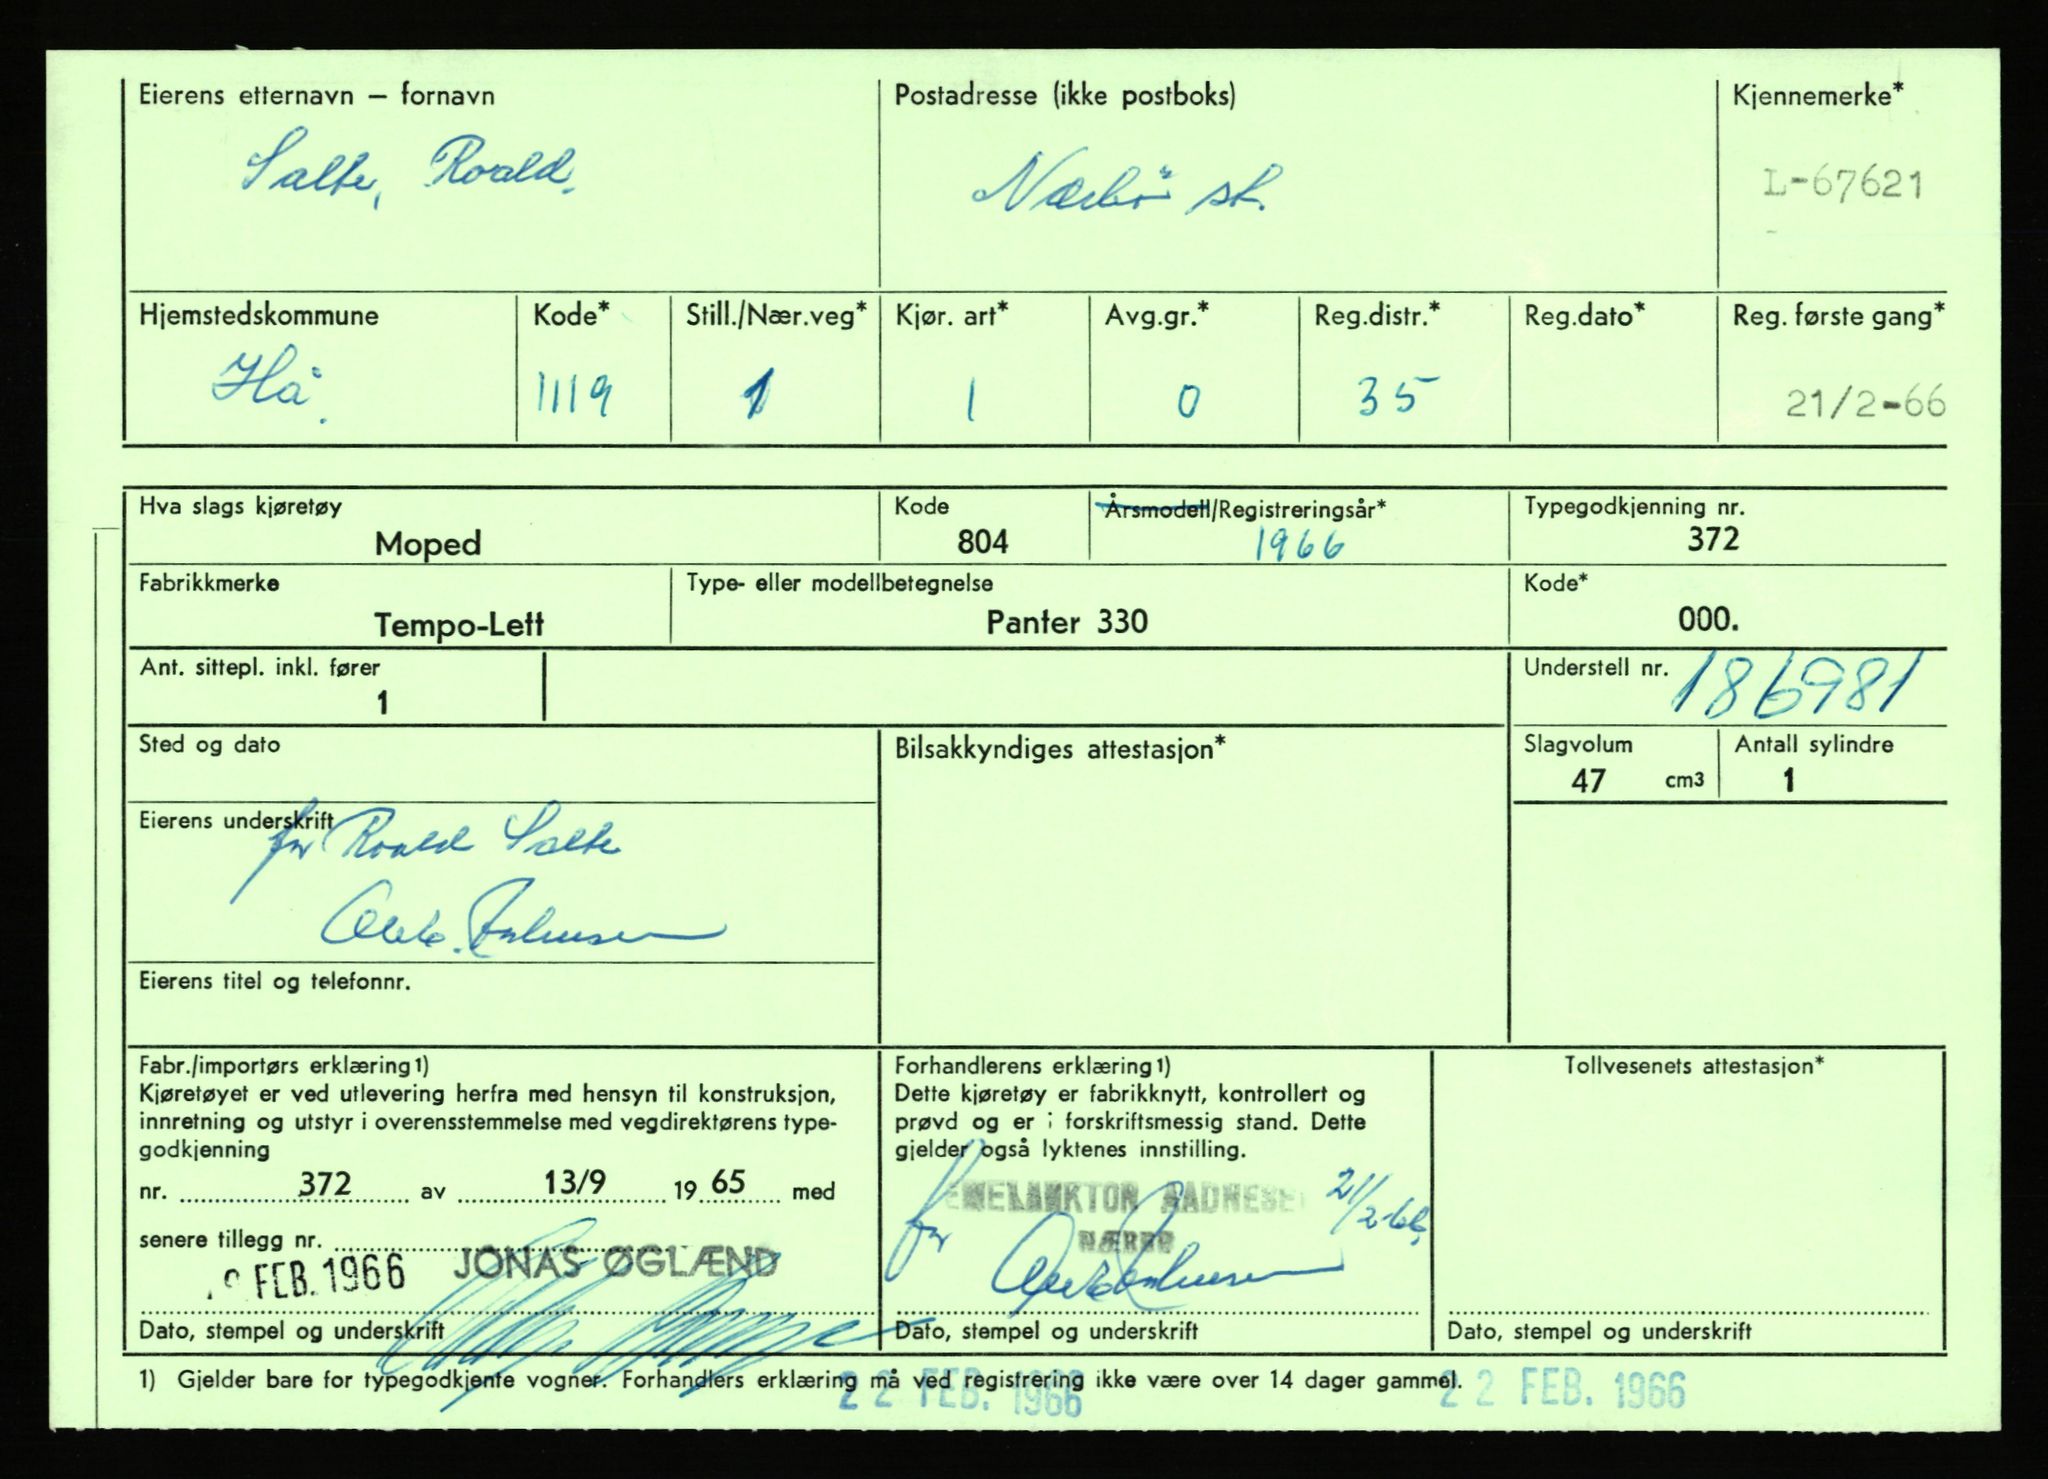 Eierens etternavn – fornavn
Postadresse (ikke postboks)
Kjennemerke*
Salte, Roald.
Nærbö st.
L-67621
Hjemstedskommune
Kode*
Still./Nær.veg*
Kjør. art*
Avg.gr.*
Reg.distr.*
Reg.dato*
Reg. første gang*
Hå.
1119
1
1
0
35
21/2-66
Hva slags kjøretøy
Kode
Årsmodell/Registreringsår*
Typegodkjenning nr.
Moped
804
1966
372
Fabrikkmerke
Type- eller modellbetegnelse
Kode*
Tempo-Lett
Panter 330
000.
Ant. sittepl. inkl. fører
Understell nr. 186981
1
Sted og dato
Bilsakkyndiges attestasjon*
Slagvolum
Antall sylindre
47 cm3
1
Eierens underskrift
for Roald Salte
Eierens titel og telefonnr.
Fabr./importørs erklæring1)
Kjøretøyet er ved utlevering herfra med hensyn til konstruksjon,
innretning og utstyr i overensstemmelse med vegdirektørens type-
godkjenning
nr. 372 av 13/9 1965 med
senere tillegg nr.
FEB. 1966 JONAS ØGLÆND
Dato, stempel og underskrift
Forhandlerens erklæring1)
Dette kjøretøy er fabrikknytt, kontrollert og
prøvd og er i forskriftsmessig stand. Dette
gjelder også lyktenes innstilling.
for
21/2-66,
NÆRBØ
Dato, stempel og underskrift
Tollvesenets attestasjon*
Dato, stempel og underskrift
1) Gjelder bare for typegodkjente vogner. Forhandlers erklæring må ved registrering ikke være over 14 dager gammel.
22 FEB. 1966
22 FEB. 1966